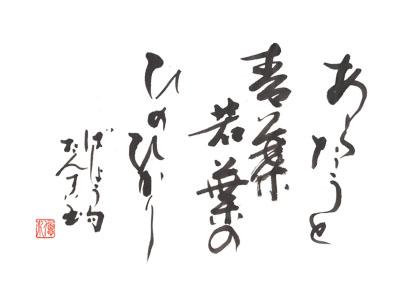 あらたうと
青葉
若葉の
ひのひかり
ばしょう句